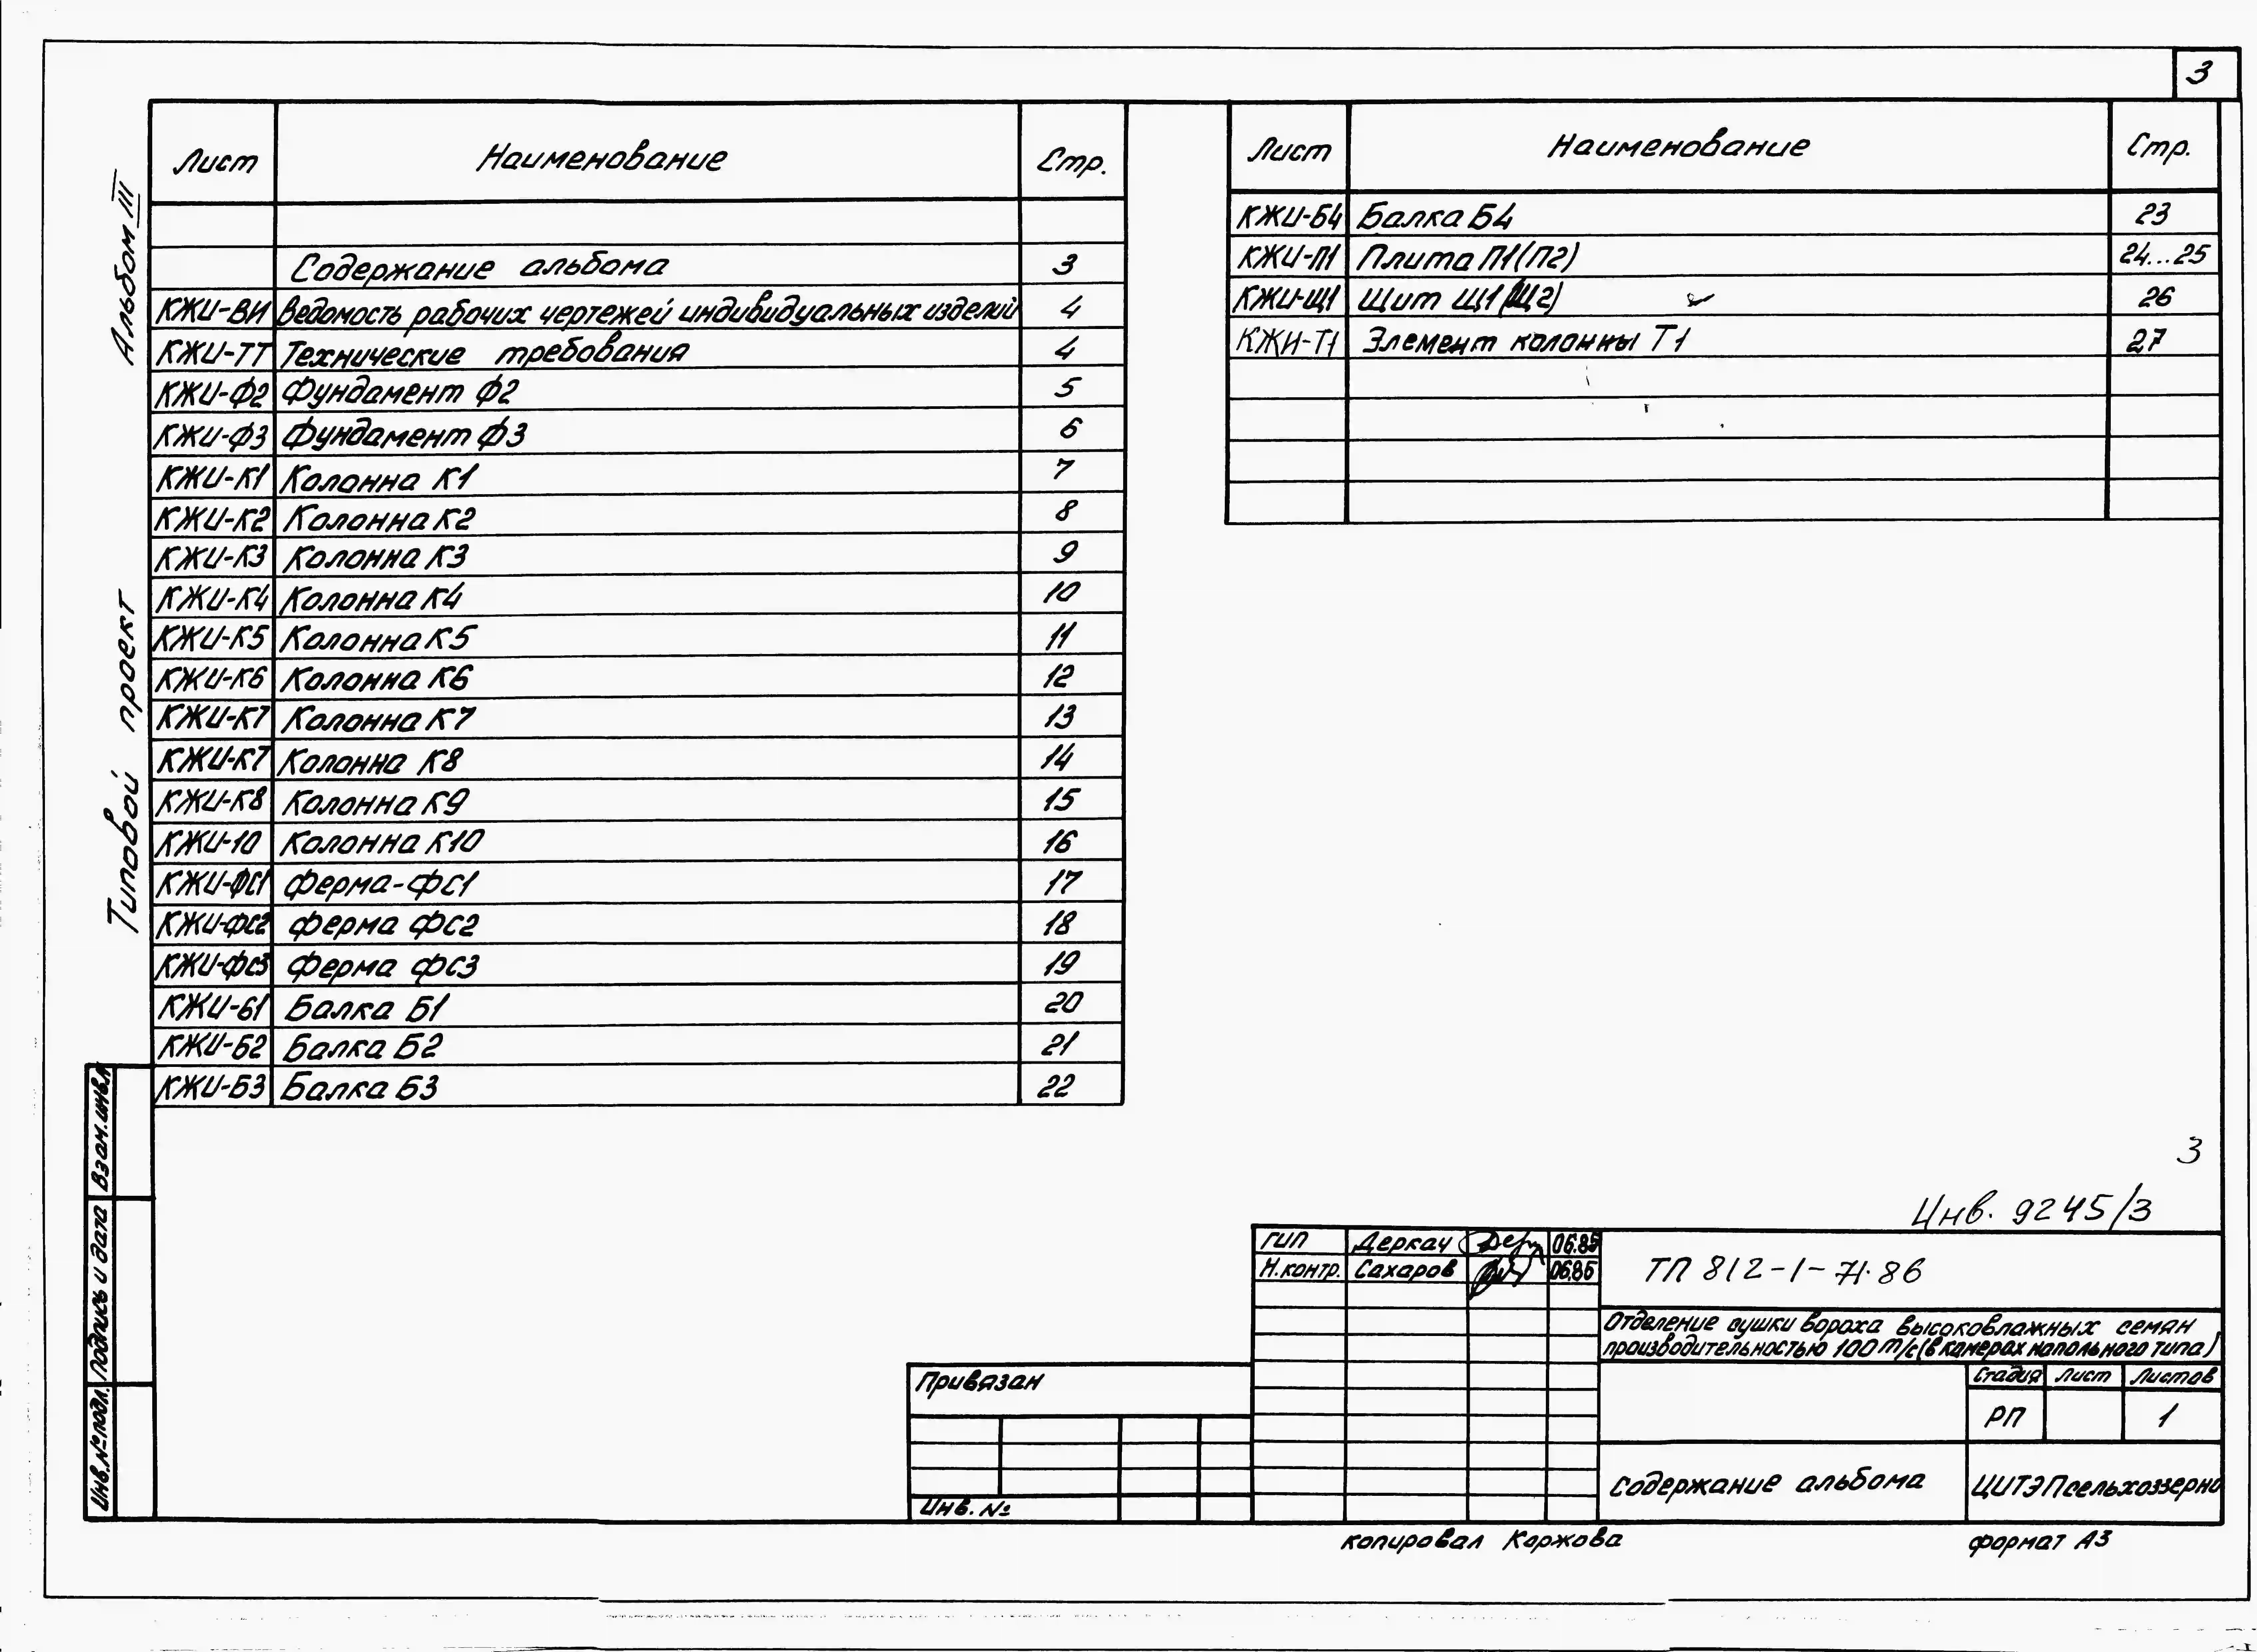 3
Альбом III
Типовой проект
Лист Наименование Стр.
Содержание альбома 3
КЖИ-ВИ Ведомость рабочих чертежей индивидуальных изделий 4
КЖИ-ТТ Технические требования 4
КЖИ-Ф2 Фундамент Ф2 5
КЖИ-Ф3 Фундамент Ф3 6
КЖИ-К1 Колонна К1 7
КЖИ-К2 Колонна К2 8
КЖИ-К3 Колонна К3 9
КЖИ-К4 Колонна К4 10
КЖИ-К5 Колонна К5 11
КЖИ-К6 Колонна К6 12
КЖИ-К7 Колонна К7 13
КЖИ-К7 Колонна К8 14
КЖИ-К8 Колонна К9 15
КЖИ-10 Колонна К10 16
КЖИ-ФС1 Ферма-ФС1 17
КЖИ-ФС2 Ферма ФС2 18
КЖИ-ФС3 Ферма ФС3 19
КЖИ-Б1 Балка Б1 20
КЖИ-Б2 Балка Б2 21
КЖИ-Б3 Балка Б3 22
Лист Наименование Стр.
КЖИ-Б4 Балка Б4 23
КЖИ-П1 Плита П1(П2) 24...25
КЖИ-Щ1 Щит Щ1(Щ2) 26
КЖИ-Т1 Элемент колонны Т1 27
Взам.инв.№
Подпись и дата
Инв.№подл.
3
Инв. 9245/3
ГИП Деркач 06.85
Н.контр. Сахаров 06.85
ТП 812-1-71.86
Отделение сушки вороха высоковлажных семян
производительностью 100т/с(в камерах напольного типа)
Стадия Лист Листов
РП 1
Содержание альбома
ЦИТЭПсельхоззерно
Привязан
Инв. №
копировал Коржова
формат А3